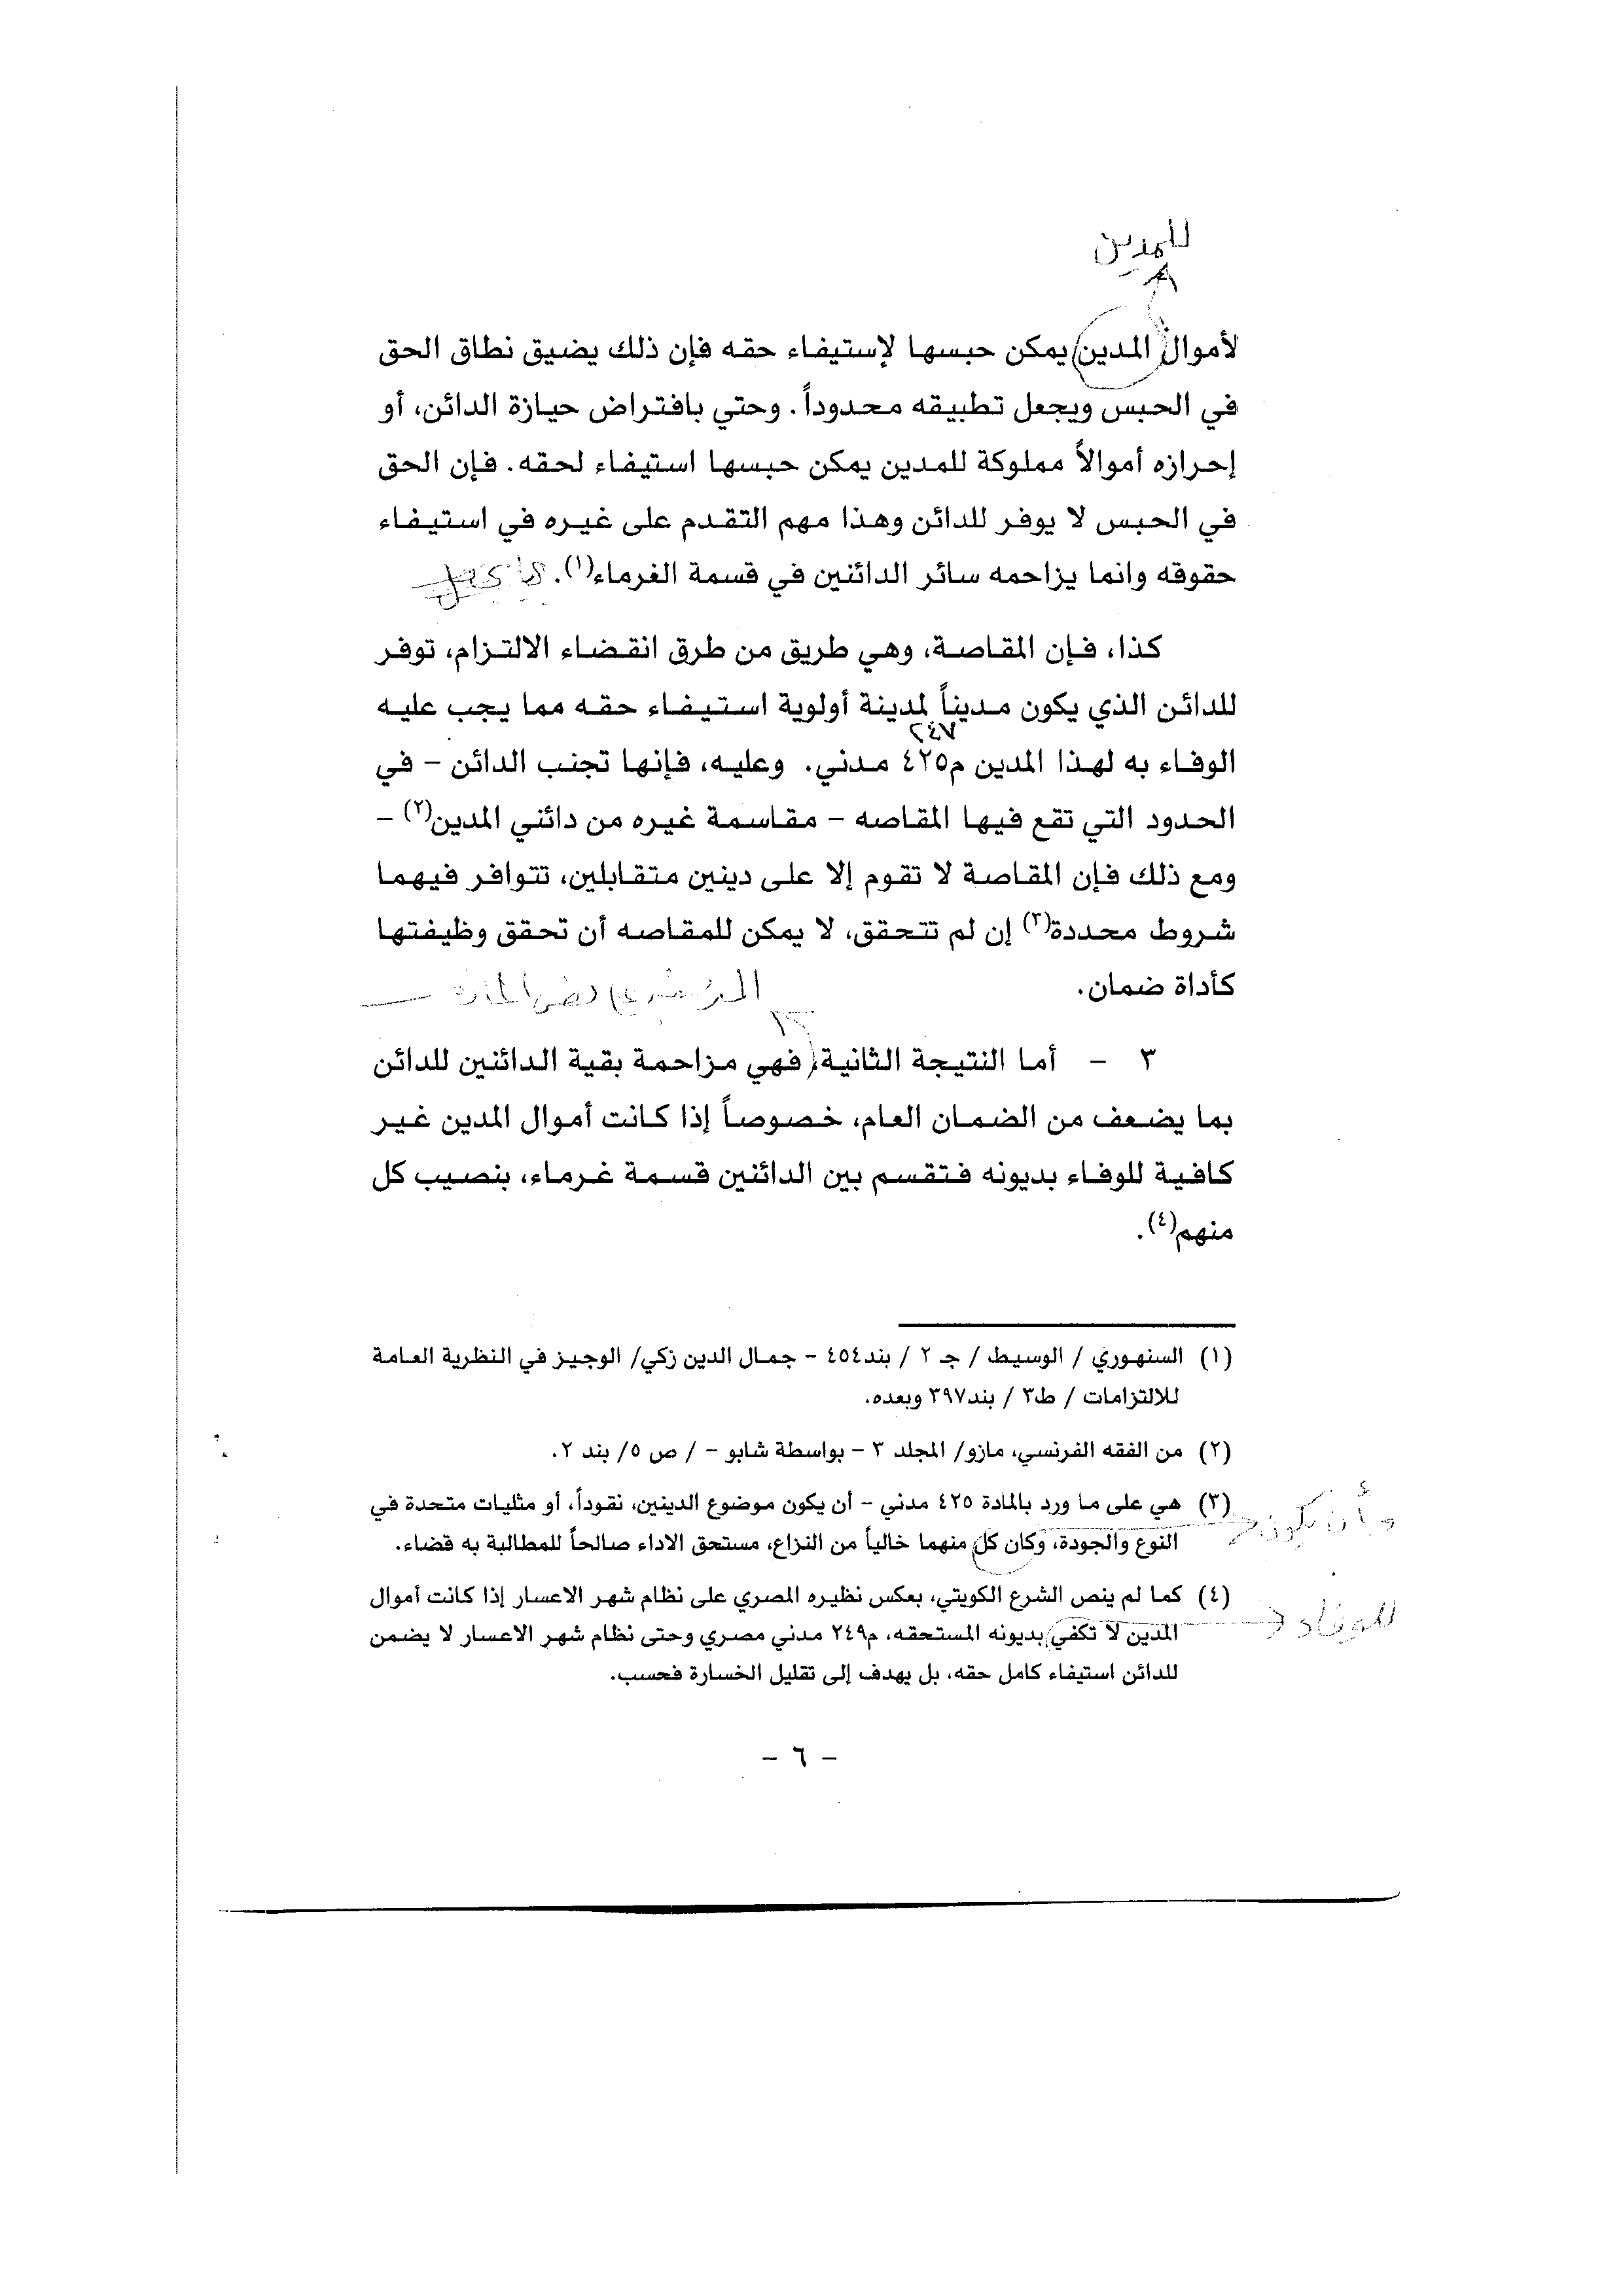 للمدين
لأموال المدين يمكن حبسها لإستيفاء حقه فإن ذلك يضيق نطاق الحق
في الحبس ويجعل تطبيقه محدوداً. وحتي بافتراض حيازة الدائن، أو
إحرازه أموالاً مملوكة للمدين يمكن حبسها استيفاء لحقه. فإن الحق
في الحبس لا يوفر للدائن وهذا مهم التقدم على غيره في استيفاء
حقوقه وانما يزاحمه سائر الدائنين في قسمة الغرماء(١).
كذا، فإن المقاصة، وهي طريق من طرق انقضاء الالتزام، توفر
للدائن الذي يكون مديناً لمدينة أولوية استيفاء حقه مما يجب عليه
٢٤٧
الوفاء به لهذا المدين م٤٢٥ مدني. وعليه، فإنها تجنب الدائن – في
الحدود التي تقع فيها المقاصه – مقاسمة غيره من دائني المدين(٢) –
ومع ذلك فإن المقاصة لا تقوم إلا على دينين متقابلين، تتوافر فيهما
شروط محددة(٣) إن لم تتحقق، لا يمكن للمقاصه أن تحقق وظيفتها
كأداة ضمان.
٣ – أما النتيجة الثانية، فهي مزاحمة بقية الدائنين للدائن
بما يضعف من الضمان العام، خصوصاً إذا كانت أموال المدين غير
كافية للوفاء بديونه فتقسم بين الدائنين قسمة غرماء، بنصيب كل
منهم(٤).
(١) السنهوري / الوسيط / جـ ٢ / بند٤٥٤ – جمال الدين زكي/ الوجيز في النظرية العامة
للالتزامات / ط٣ / بند٣٩٧ وبعده.
(٢) من الفقه الفرنسي، مازو/ المجلد ٣ – بواسطة شابو – / ص ٥/ بند ٢.
(٣) هي على ما ورد بالمادة ٤٢٥ مدني – أن يكون موضوع الدينين، نقوداً، أو مثليات متحدة في
وأن يكون
النوع والجودة، وكان كل منهما خالياً من النزاع، مستحق الاداء صالحاً للمطالبة به قضاء.
(٤) كما لم ينص الشرع الكويتي، بعكس نظيره المصري على نظام شهر الاعسار إذا كانت أموال
للوفاء
المدين لا تكفي بديونه المستحقه، م٢٤٩ مدني مصري وحتى نظام شهر الاعسار لا يضمن
للدائن استيفاء كامل حقه، بل يهدف إلى تقليل الخسارة فحسب.
– ٦ –